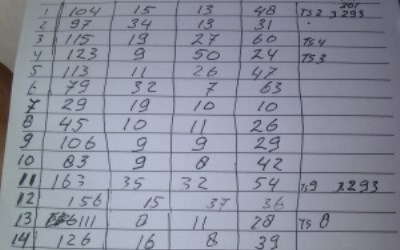 1 164 5 13 48
2 97 34 13 Ts2 3293
3 125 19 27 60 Ts4
4 123 9 50 24 Ts3
5 113 11 26 47
6 79 32 7 63
7 29 19 10 10
8 45 10 11 26
9 106 9 9 29
10 83 9 8 42
11 163 35 32 54 Ts9 3293
12 156 15 37 36
13 111 0 11 28 Ts 0
14 126 16 8 39